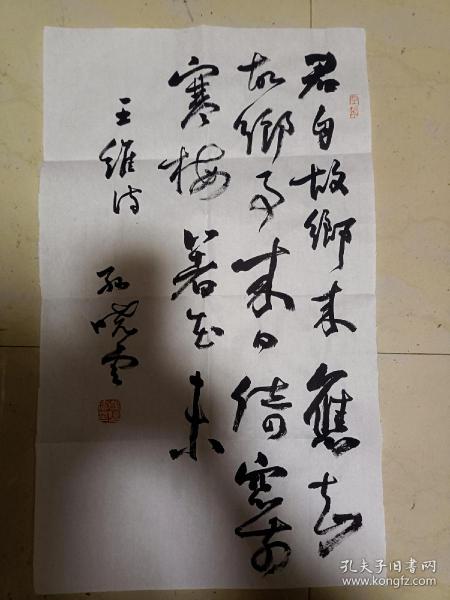 君自故鄉来應知
故鄉事来日倚窓前
寒梅著花未
王維诗
孙晓雲
孔夫子旧书网
www.kongfz.com